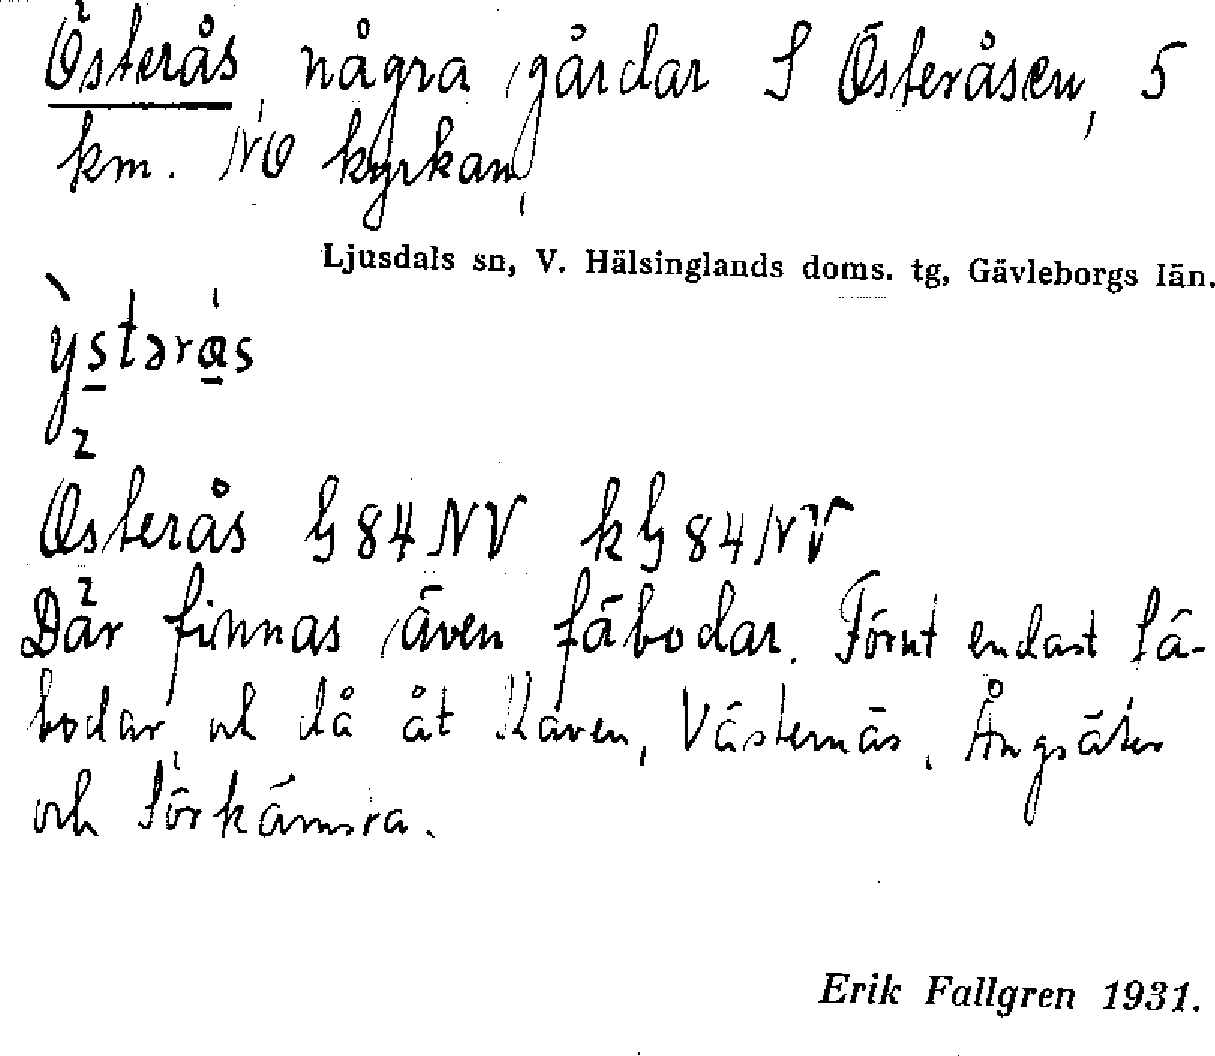 Österås, några gårdar S Österåsen, 5
km. NO kyrkan.
Ljusdals sn, V. Hälsinglands doms. tg, Gävleborgs län.
ỳstərås
Österås G 84 NV kG 84 NV
Där finnas även fäbodar. Förut endast fä-
bodar, och då åt Käven, Västernäs, Ångsäter
och Sörkämsra.
Erik Fallgren 1931.